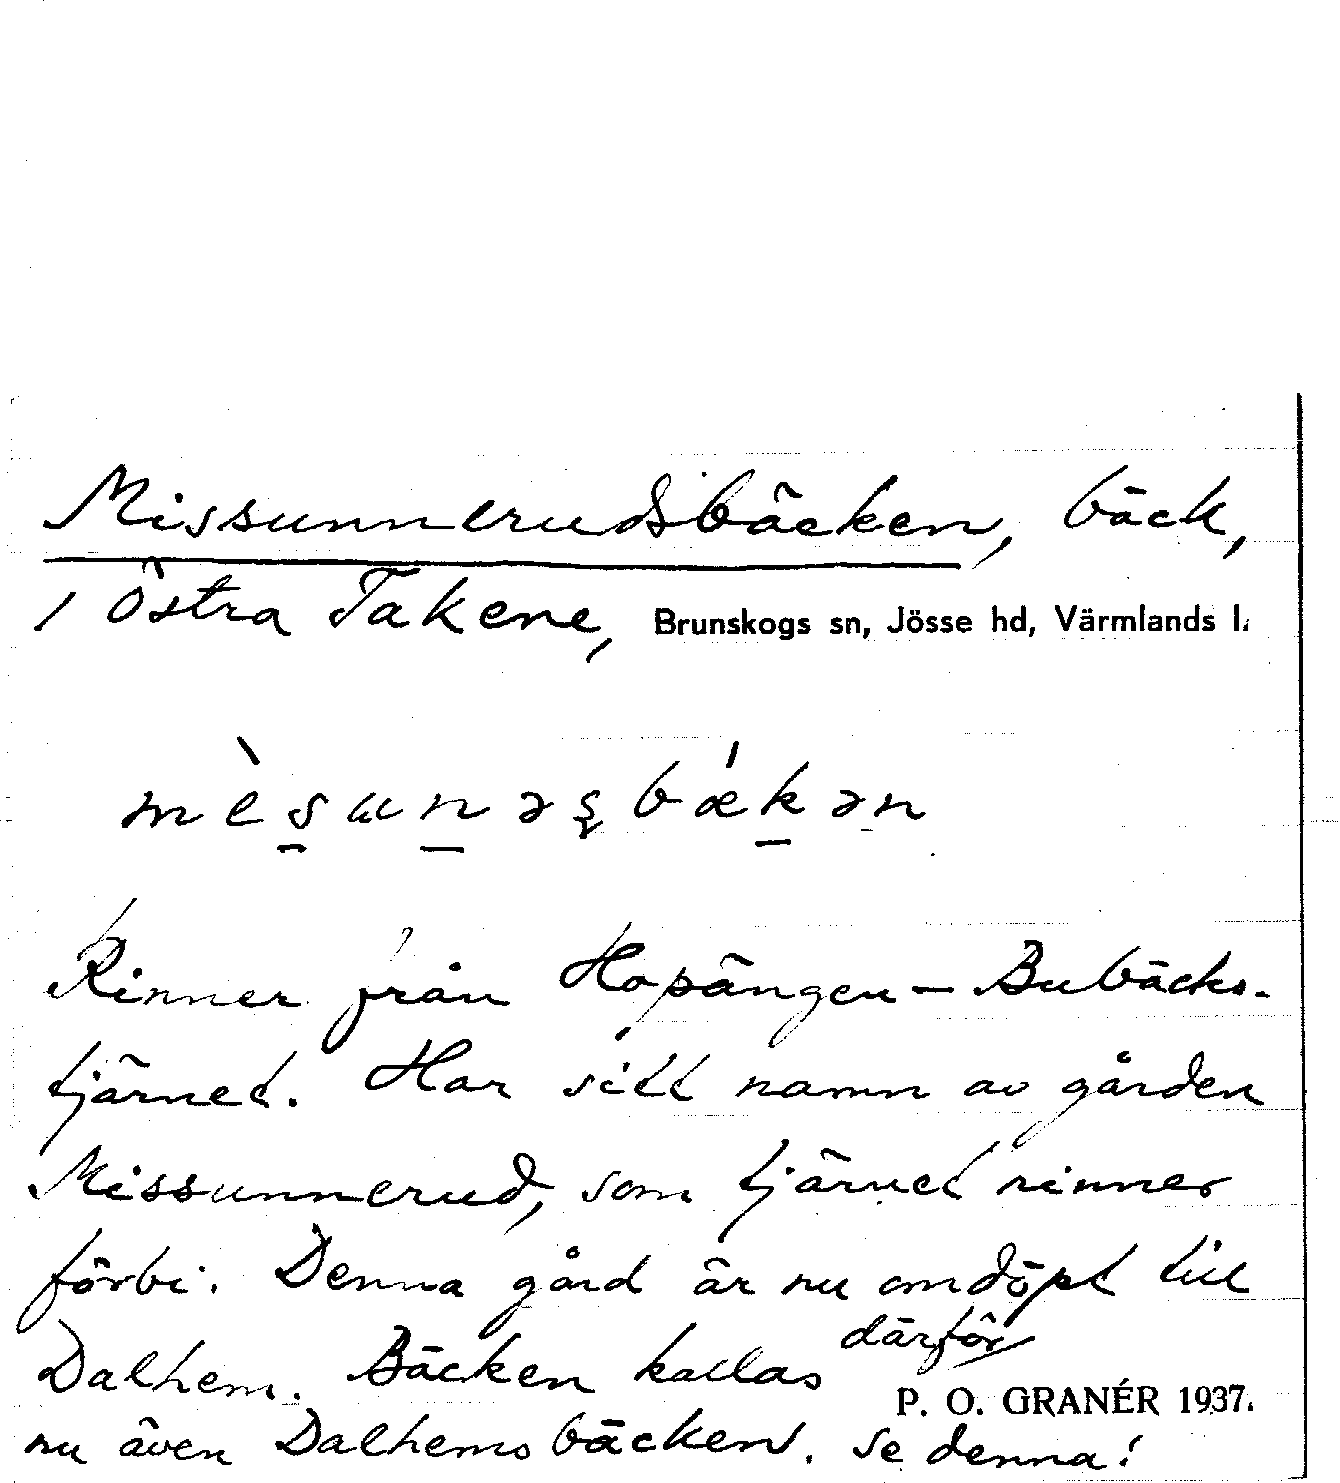 Missunnerudsbäcken, bäck,
i Östra Takene, Brunskogs sn, Jösse hd, Värmlands l.
mèsunəʂbǽkən
Rinner från Hopängen – Bubäcks-
tjärnet. Har sitt namn av gården
Missunnerud, som tjärnet rinner
förbi. Denna gård är nu omdöpt till
Dalhem. Bäcken kallas därför
P. O. GRANÉR 1937.
nu även Dalhemsbäcken. Se denna!